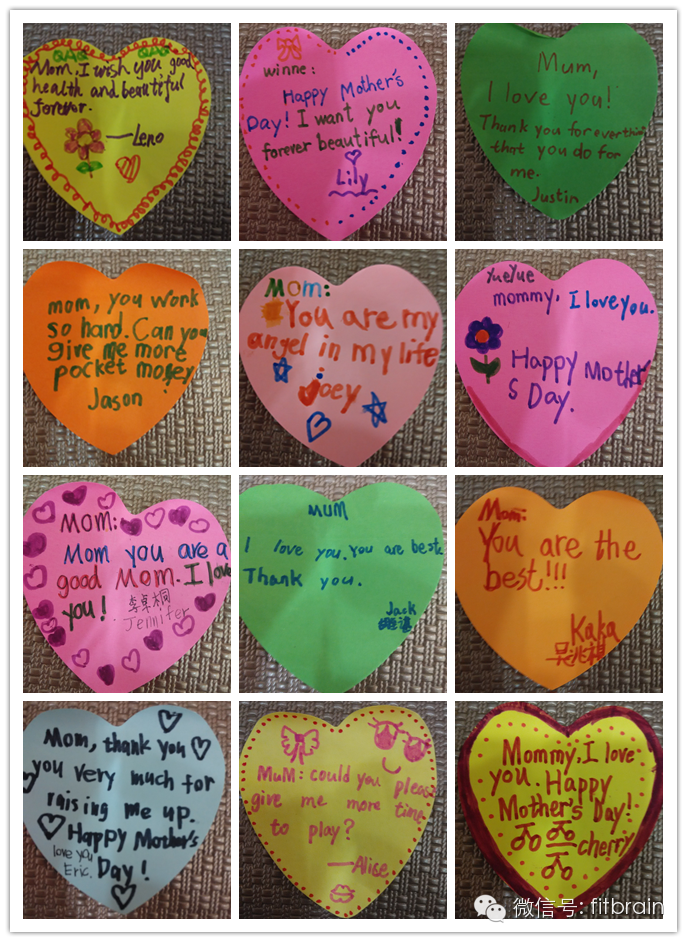 QAQ QAQ
Mom. I wish you good
health and beautiful
forever.
—Leno
winne:
Happy Mother's
Day! I want you
forever beautiful!
Lily
Mum,
I love you!
Thank you for everthing
that you do for
me.
Justin
mom, you work
so hard. Can you
give me more
pocket money
Jason
Mom:
You are my
angel in my life
joey
YueYue
mommy, I love you.
Happy Mother'
s Day.
Mom:
Mom you are a
good Mom. I love
you!
李卓桐
Jennifer
MUM
I love you. You are best.
Thank you.
Jack
Mom:
You are the
best!!!
Kaka
吴兆祺
Mom, thank you
you very much for
raising me up.
Happy Mother's
Day!
love you
Eric.
MuM: could you please
give me more time
to play?
—Alice
Mommy, I love
you. Happy
Mother's Day!
cherry
微信号: fitbrain